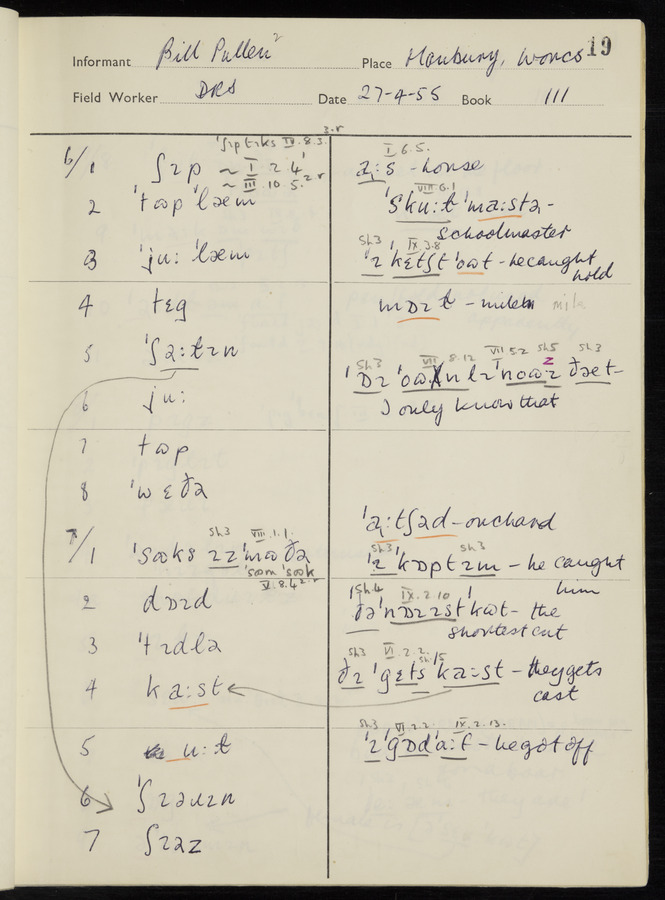 19
Informant Bill Pullen Place Hanbury, Worcs
Field Worker DRS Date 27-4-55 Book III
ʃɪptɪks IV.8.3. 3.r
6/1 ʃɪp ~ I 2.4'
~ III.10.5. 2r
2 'tɒp 'læm
3 'ju: 'læm
4 tɛg
5 'ʃɪə:tɪn
6 ju:
7 tɒp
8 'wɛðə
7/1 'sɒks ɪz 'mɒðə
sh3 VIII.1.1.
'sɒm 'sɒk
V.8.4 2r
2 dɒɪd
3 'tɪdlə
4 ka:st
5 u:t
6 'ʃɪəuɪn
7 ʃɪəz
I 6.5.
a:s - house
VIII 6.1
'sku:ɫ 'ma:stə -
schoolmaster
sh3 IX.3.8
'ɪ 'kɛtʃt 'ɒwt - he caught
hold
mɒɪɫ - mile mile
sh3 VII 8.12 VII 5 2 sh5 sh3
z
'ɒɪ 'ɒwnlɪ 'nɒwz ðæt -
I only know that
'a:tʃəd - orchard
sh3 sh3
'ɪ 'kɒptɪm - he caught
him
sh4 IX.2.10
ðə 'nɒɪɪst kɒt - the
shortest cut
sh3 VI.2.2. sh 15
ðɪ 'gɛts ka:st - they gets
cast
sh3 VI 2.2 IX.2.13.
'ɪ 'gɒd 'a:f - he got off